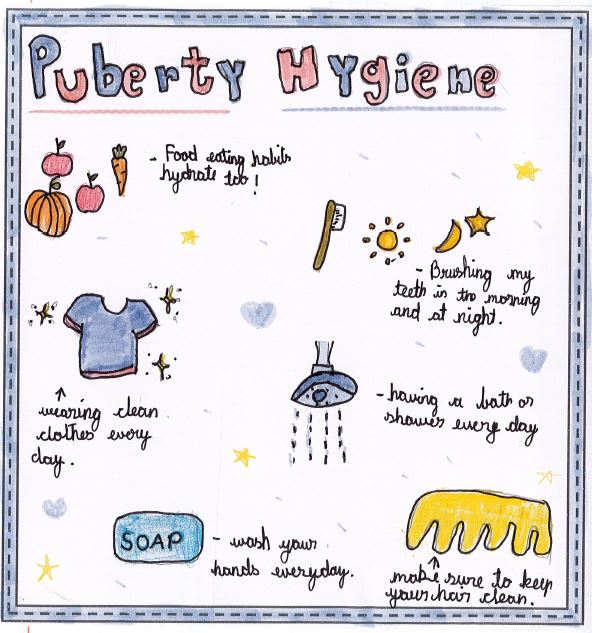 Puberty Hygiene
- Food eating habits
hydrate too!
- Brushing my
teeth in the morning
and at night.
↑
wearing clean
clothes every
day.
- having a bath or
shower every day
SOAP
- wash your
hands everyday.
↑
make sure to keep
your hair clean.